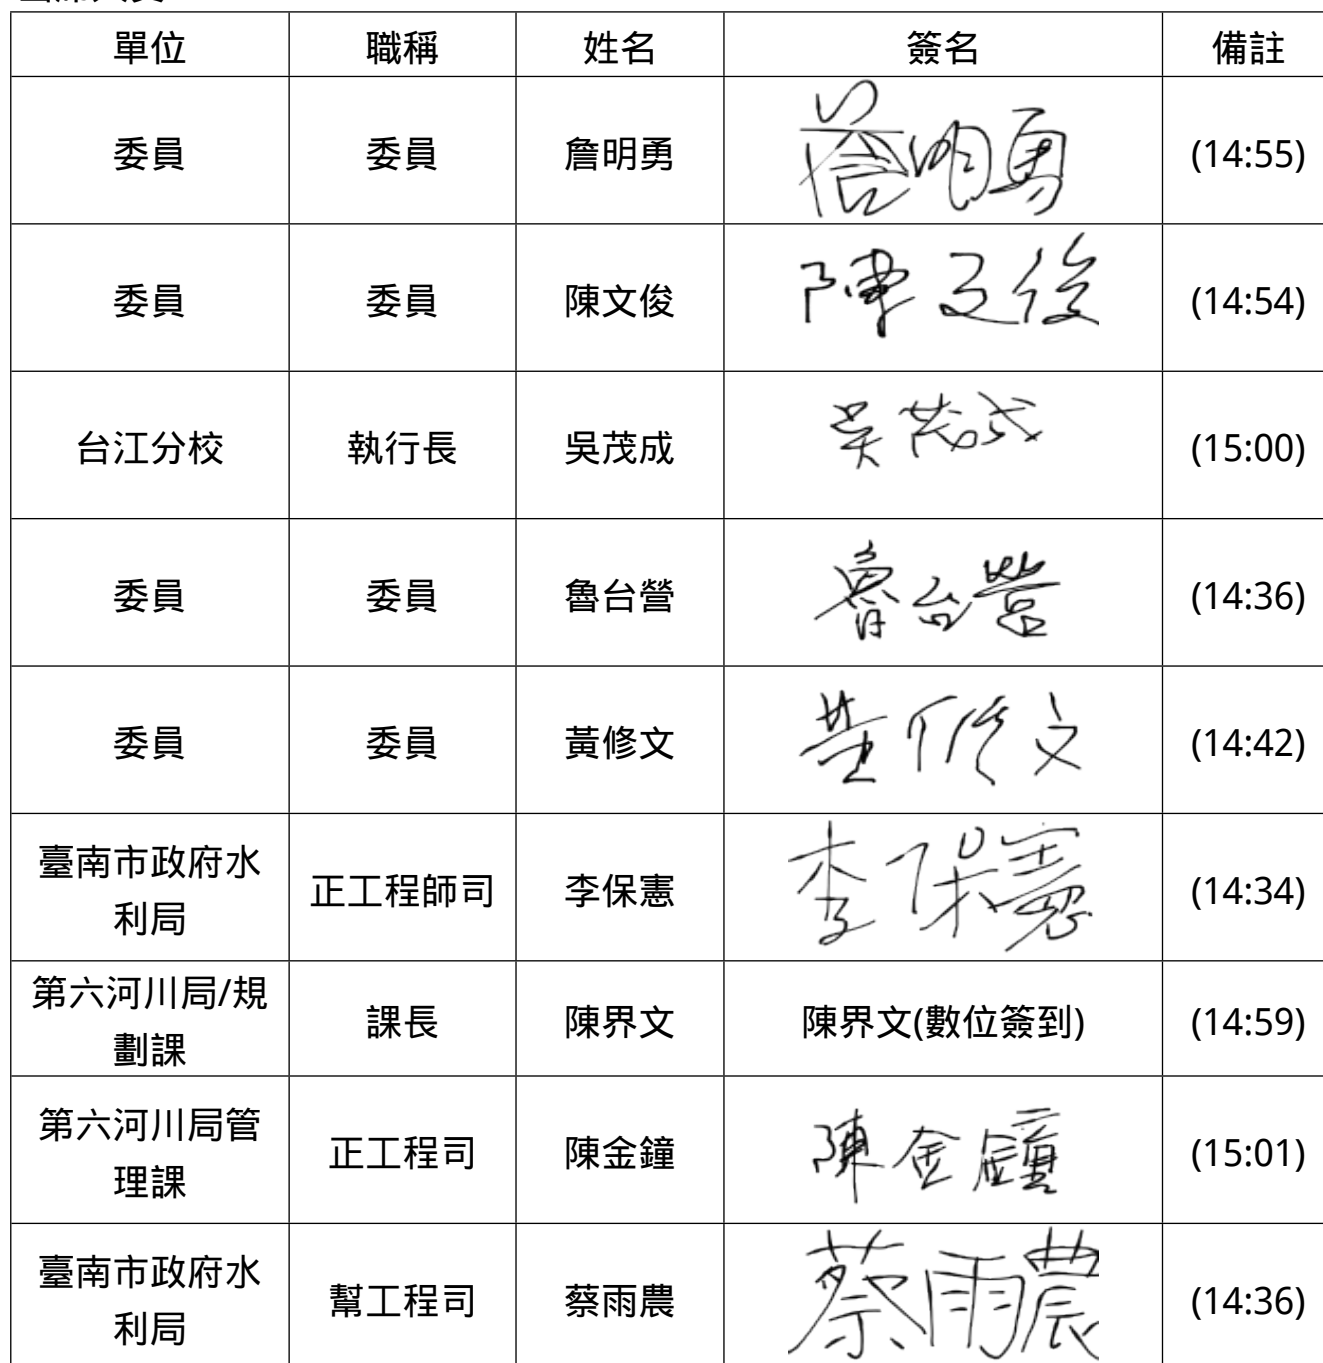 單位 職稱 姓名 簽名 備註
委員 委員 詹明勇 詹明勇 (14:55)
委員 委員 陳文俊 陳文俊 (14:54)
台江分校 執行長 吳茂成 吳茂成 (15:00)
委員 委員 魯台營 魯台營 (14:36)
委員 委員 黃修文 黃修文 (14:42)
臺南市政府水
利局 正工程師司 李保憲 李保憲 (14:34)
第六河川局/規
劃課 課長 陳界文 陳界文(數位簽到) (14:59)
第六河川局管
理課 正工程司 陳金鐘 陳金鐘 (15:01)
臺南市政府水
利局 幫工程司 蔡雨農 蔡雨農 (14:36)